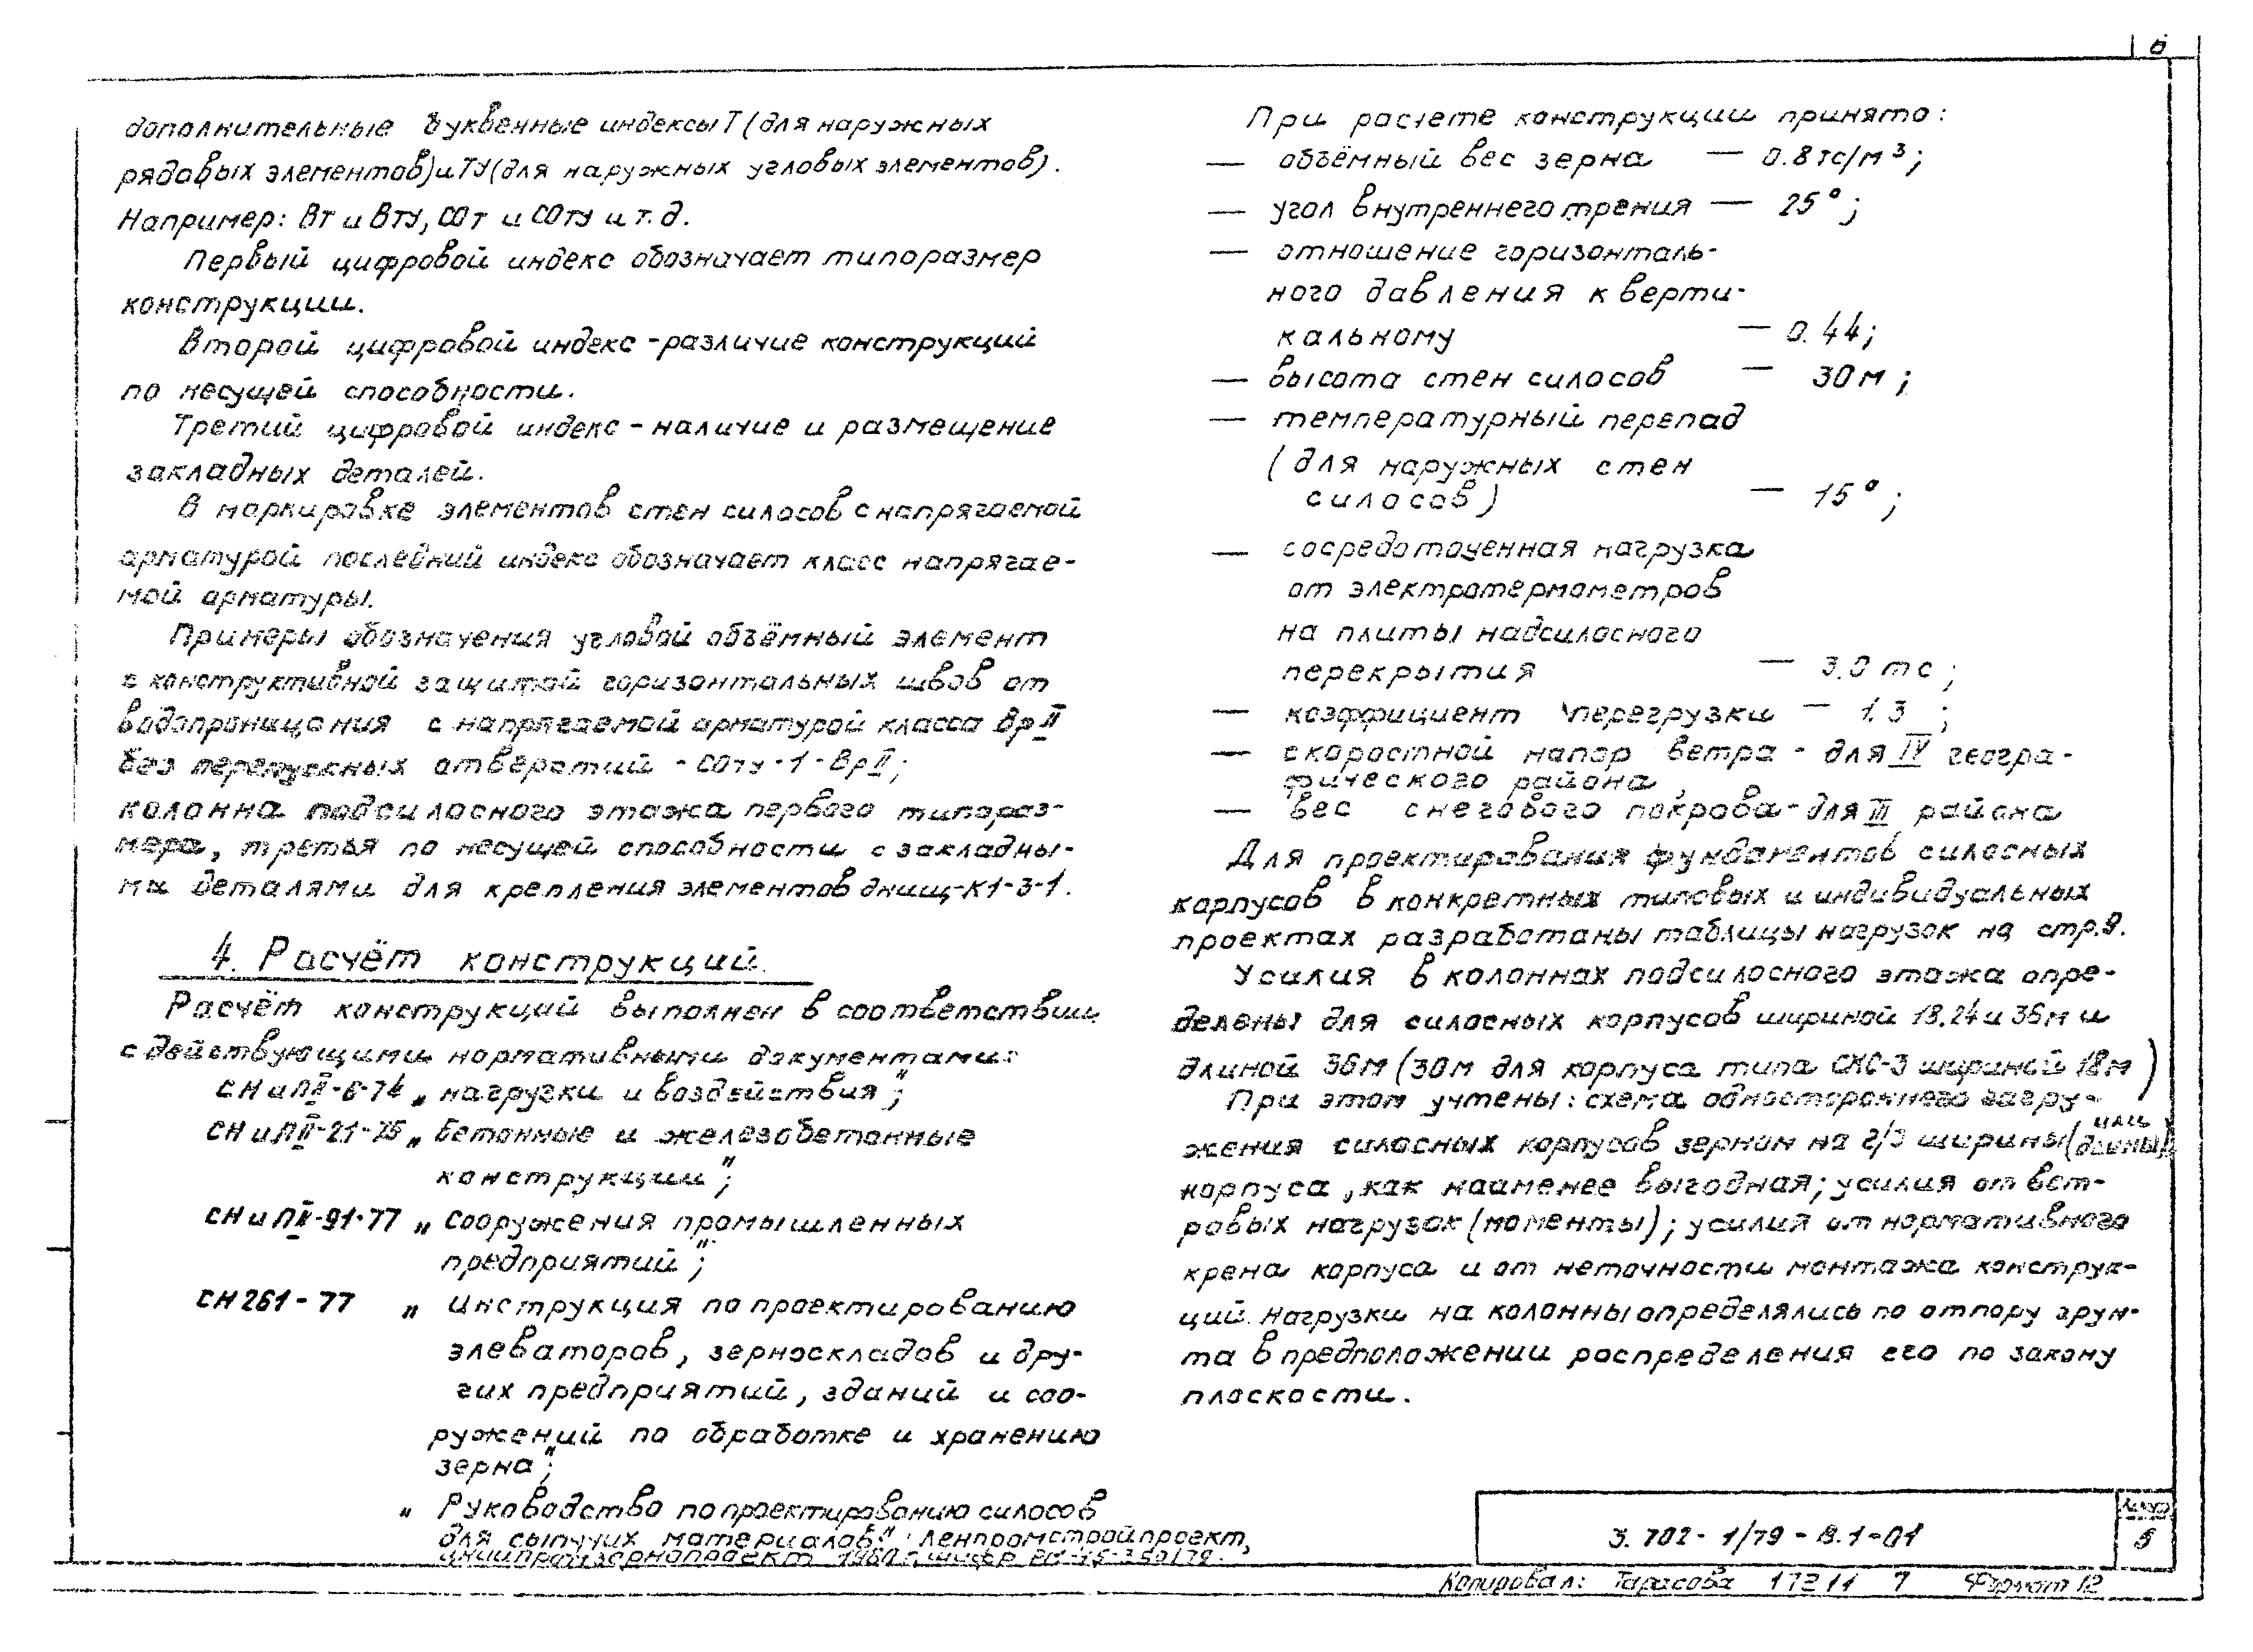 6
дополнительные буквенные индексы Т (для наружных
рядовых элементов) и ТУ (для наружных угловых элементов).
Например: ВТ и ВТУ, СОТ и СОТУ и т.д.
Первый цифровой индекс обозначает типоразмер
конструкции.
Второй цифровой индекс - различие конструкций
по несущей способности.
Третий цифровой индекс - наличие и размещение
закладных деталей.
В маркировке элементов стен силосов с напрягаемой
арматурой последний индекс обозначает класс напрягае-
мой арматуры.
Примеры обозначения угловой объёмный элемент
с конструктивной защитой горизонтальных швов от
водопроницания с напрягаемой арматурой класса Вр II
без перепускных отверстий - СОТУ-1-Вр II;
колонна подсилосного этажа первого типораз-
мера, третья по несущей способности с закладны-
ми деталями для крепления элементов днищ-К1-3-1.
4. Расчёт конструкций.
Расчёт конструкций выполнен в соответствии
с действующими нормативными документами:
СНиП II-6-74 „ нагрузки и воздействия";
СНиП II-21-75 „ Бетонные и железобетонные
конструкции";
СНиП II-91-77 „ Сооружения промышленных
предприятий";
СН 261-77 „ Инструкция по проектированию
элеваторов, зерноскладов и дру-
гих предприятий, зданий и соо-
ружений по обработке и хранению
зерна";
„ Руководство по проектированию силосов
для сыпучих материалов". Ленпромстройпроект,
ЦНИИпромзернопроект 1980 г. шифр
При расчете конструкции принято:
— объёмный вес зерна — 0.8 тс/м³;
— угол внутреннего трения — 25°;
— отношение горизонталь-
ного давления к верти-
кальному — 0.44;
— высота стен силосов — 30 м;
— температурный перепад
(для наружных стен
силосов) — 15°;
— сосредоточенная нагрузка
от электротермометров
на плиты надсилосного
перекрытия — 3.0 тс;
— коэффициент перегрузки — 1.3 ;
— скоростной напор ветра - для IV геогра-
фического района,
— вес снегового покрова - для III района
Для проектирования фундаментов силосных
корпусов в конкретных типовых и индивидуальных
проектах разработаны таблицы нагрузок на стр.9.
Усилия в колоннах подсилосного этажа опре-
делены для силосных корпусов шириной 18.24 и 36 м и
длиной 36 м (30 м для корпуса типа СКС-3 шириной 18 м)
При этом учтены: схема одностороннего загру-
жения силосных корпусов зерном на 2/3 ширины (или длины)
корпуса, как наименее выгодная; усилия от вет-
ровых нагрузок (моменты); усилия от нормативного
крена корпуса и от неточности монтажа конструк-
ций. Нагрузки на колонны определялись по отпору грун-
та в предположении распределения его по закону
плоскости.
3.702-1/79-В.1-01
Лист
6
Копировал: Тарасова 17211 7 Формат 12